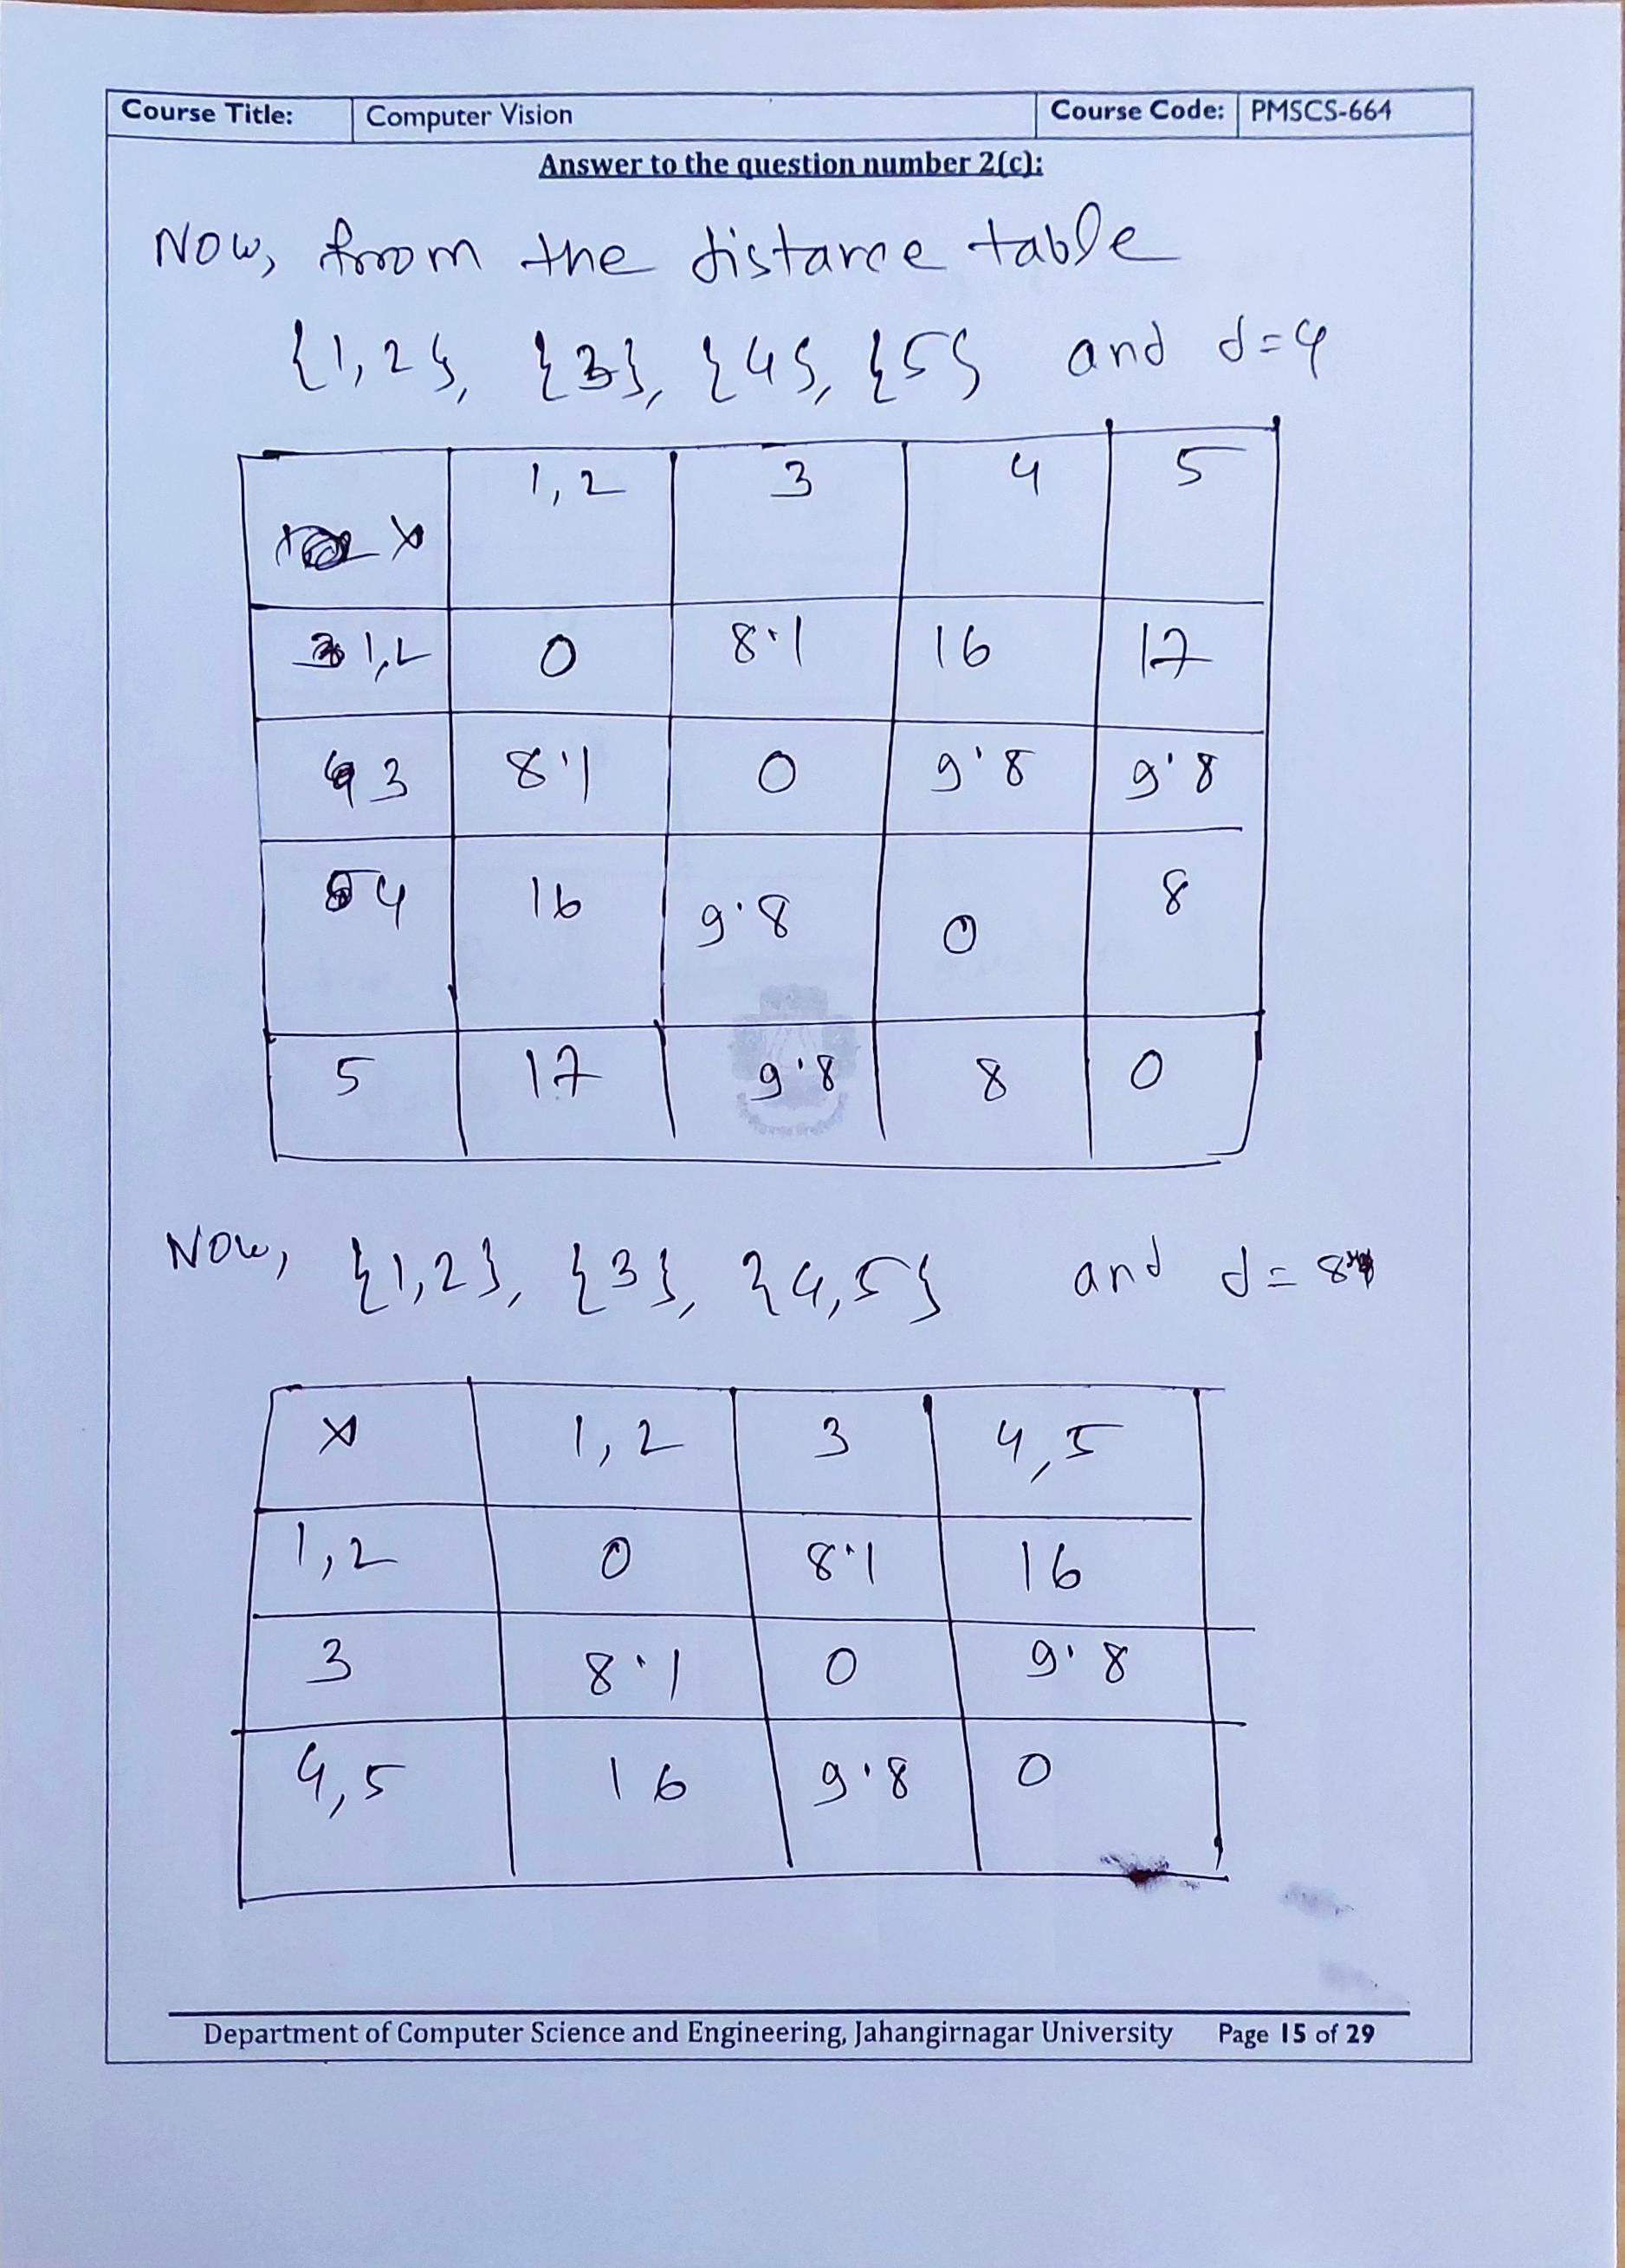 Course Title: Computer Vision Course Code: PMSCS-664
Answer to the question number 2(c):
Now, from the distance table
{1,2}, {3}, {4}, {5} and d=4
1,2 3 4 5
x
1,2 0 8.1 16 17
3 8.1 0 9.8 9.8
4 16 9.8 0 8
5 17 9.8 8 0
Now, {1,2}, {3}, {4,5} and d=8
x 1,2 3 4,5
1,2 0 8.1 16
3 8.1 0 9.8
4,5 16 9.8 0
Department of Computer Science and Engineering, Jahangirnagar University Page 15 of 29